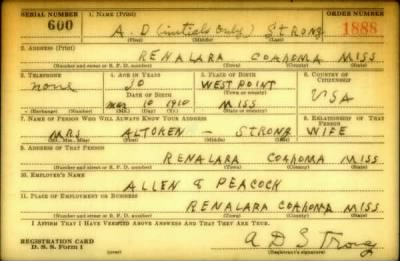 SERIAL NUMBER 1. NAME (Print) ORDER NUMBER
600 A. D (initials only) STRONG 1888
(First) (Middle) (Last)
2. ADDRESS (Print)
RENALARA COAHOMA MISS
(Number and street or R. F. D. number) (Town) (County) (State)
3. TELEPHONE 4. AGE IN YEARS 5. PLACE OF BIRTH 6. COUNTRY OF CITIZENSHIP
none 30 WEST POINT
DATE OF BIRTH (Town or county)
10 1910 MISS USA
(Exchange) (Number) (Mo.) (Day) (Yr.) (State or country)
7. NAME OF PERSON WHO WILL ALWAYS KNOW YOUR ADDRESS 8. RELATIONSHIP OF THAT PERSON
MRS ALTOREN - STRONG WIFE
(Mr., Mrs., Miss) (First) (Middle) (Last)
9. ADDRESS OF THAT PERSON
RENALARA COAHOMA MISS
(Number and street or R. F. D. number) (Town) (County) (State)
10. EMPLOYER'S NAME
ALLEN & PEACOCK
11. PLACE OF EMPLOYMENT OR BUSINESS
RENALARA COAHOMA MISS
(Number and street or R. F. D. number) (Town) (County) (State)
I AFFIRM THAT I HAVE VERIFIED ABOVE ANSWERS AND THAT THEY ARE TRUE.
REGISTRATION CARD A D Strong
D. S. S. Form 1 (over) (Registrant's signature)